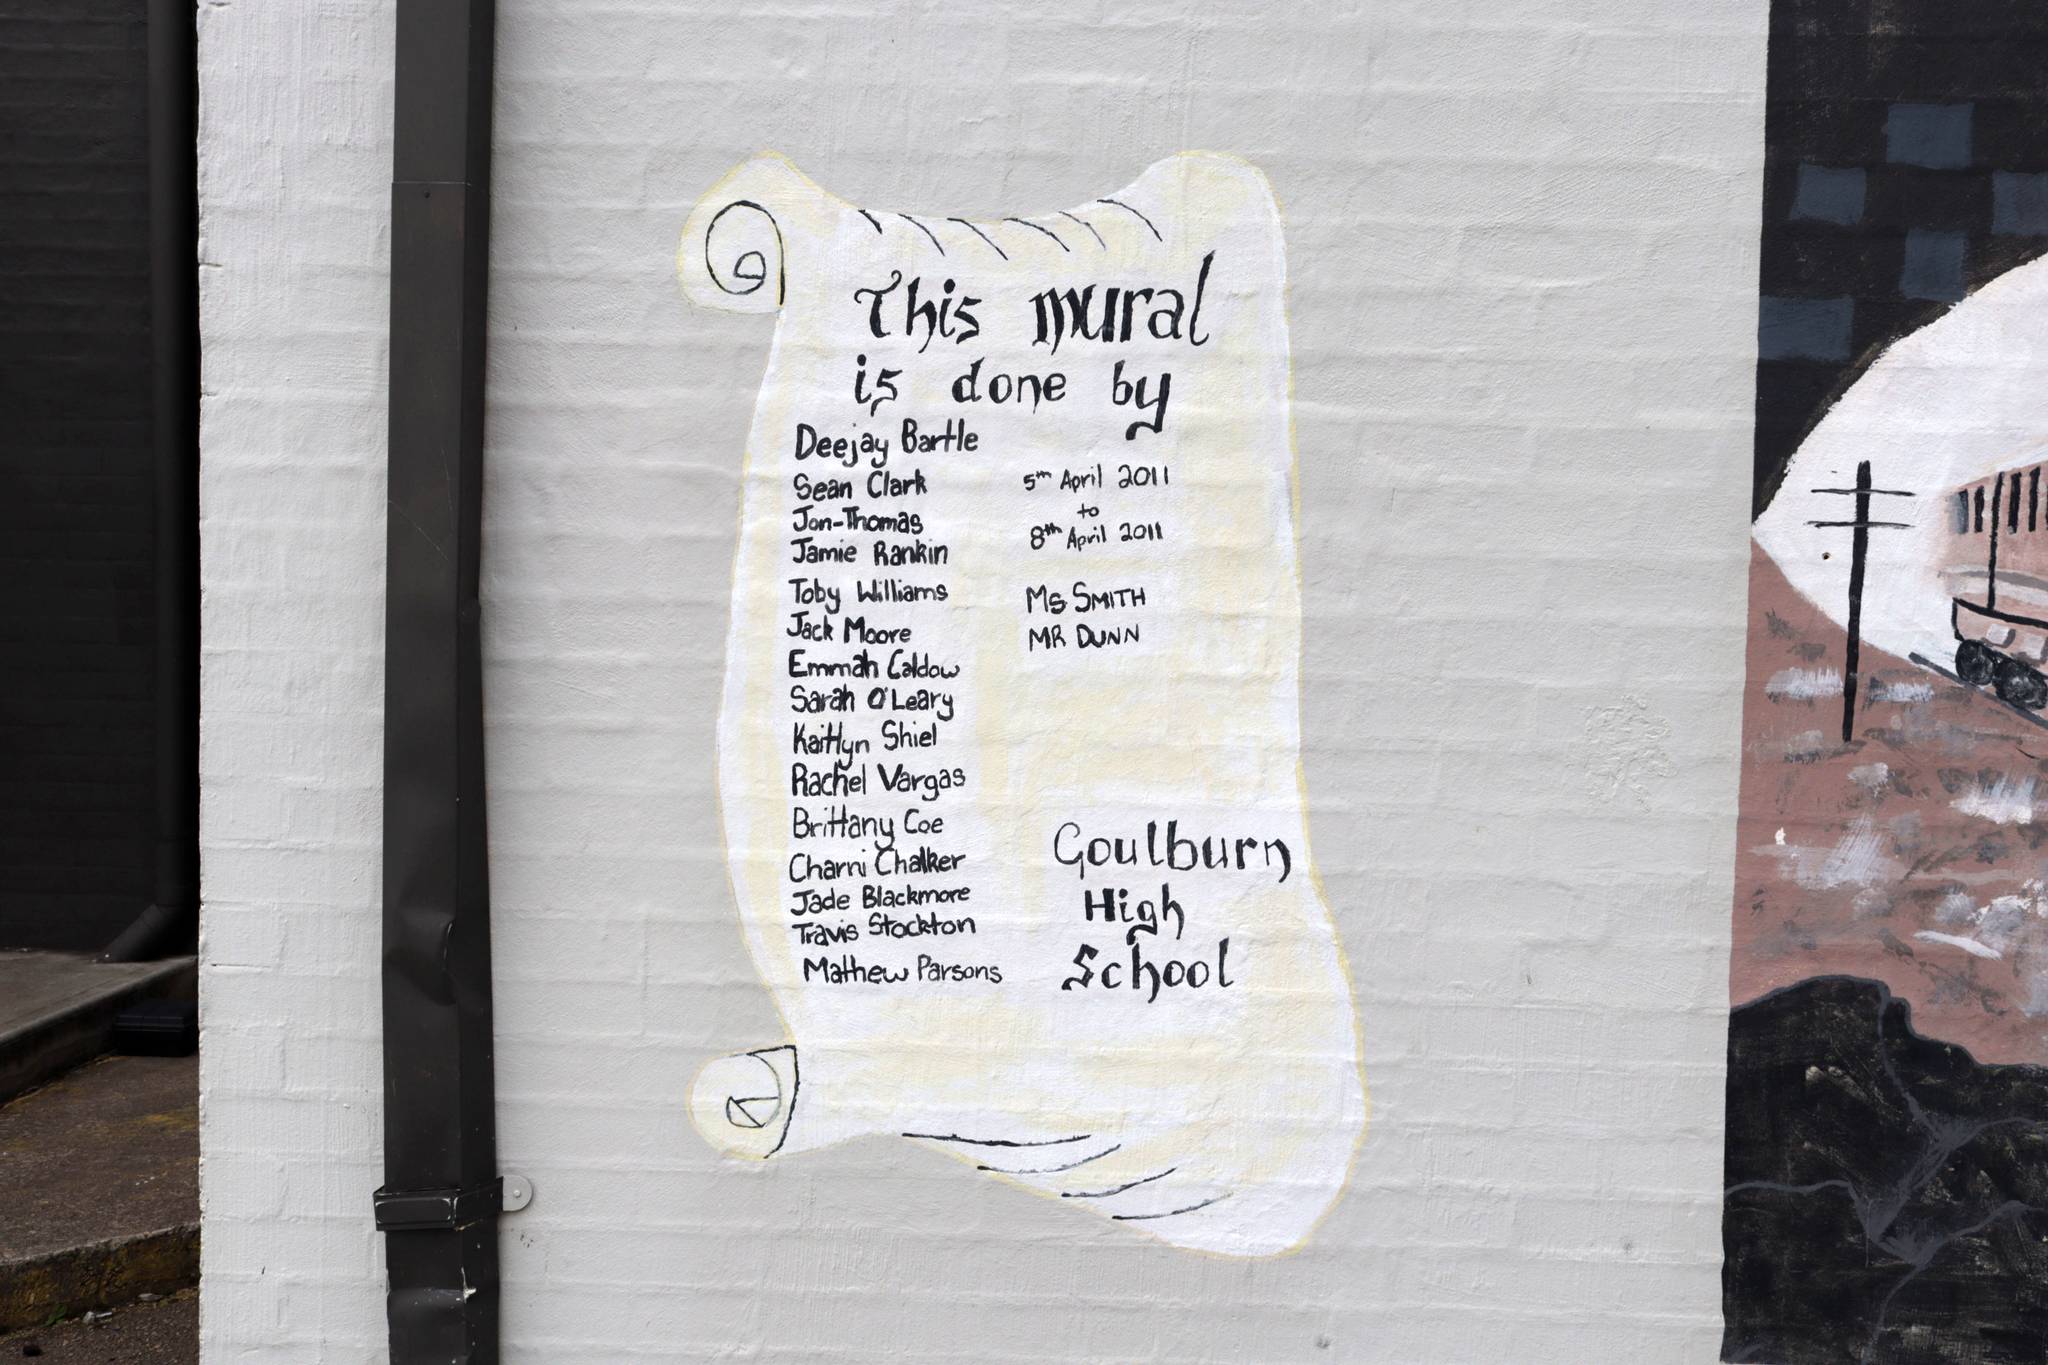 This mural
is done by
Deejay Bartle
Sean Clark
Jon-Thomas
Jamie Rankin
Toby Williams
Jack Moore
Emmah Caldow
Sarah O'Leary
Kaitlyn Shiel
Rachel Vargas
Brittany Coe
Charni Chalker
Jade Blackmore
Travis Stockton
Mathew Parsons
5th April 2011
to
8th April 2011
Ms SMITH
MR DUNN
Goulburn
High
School